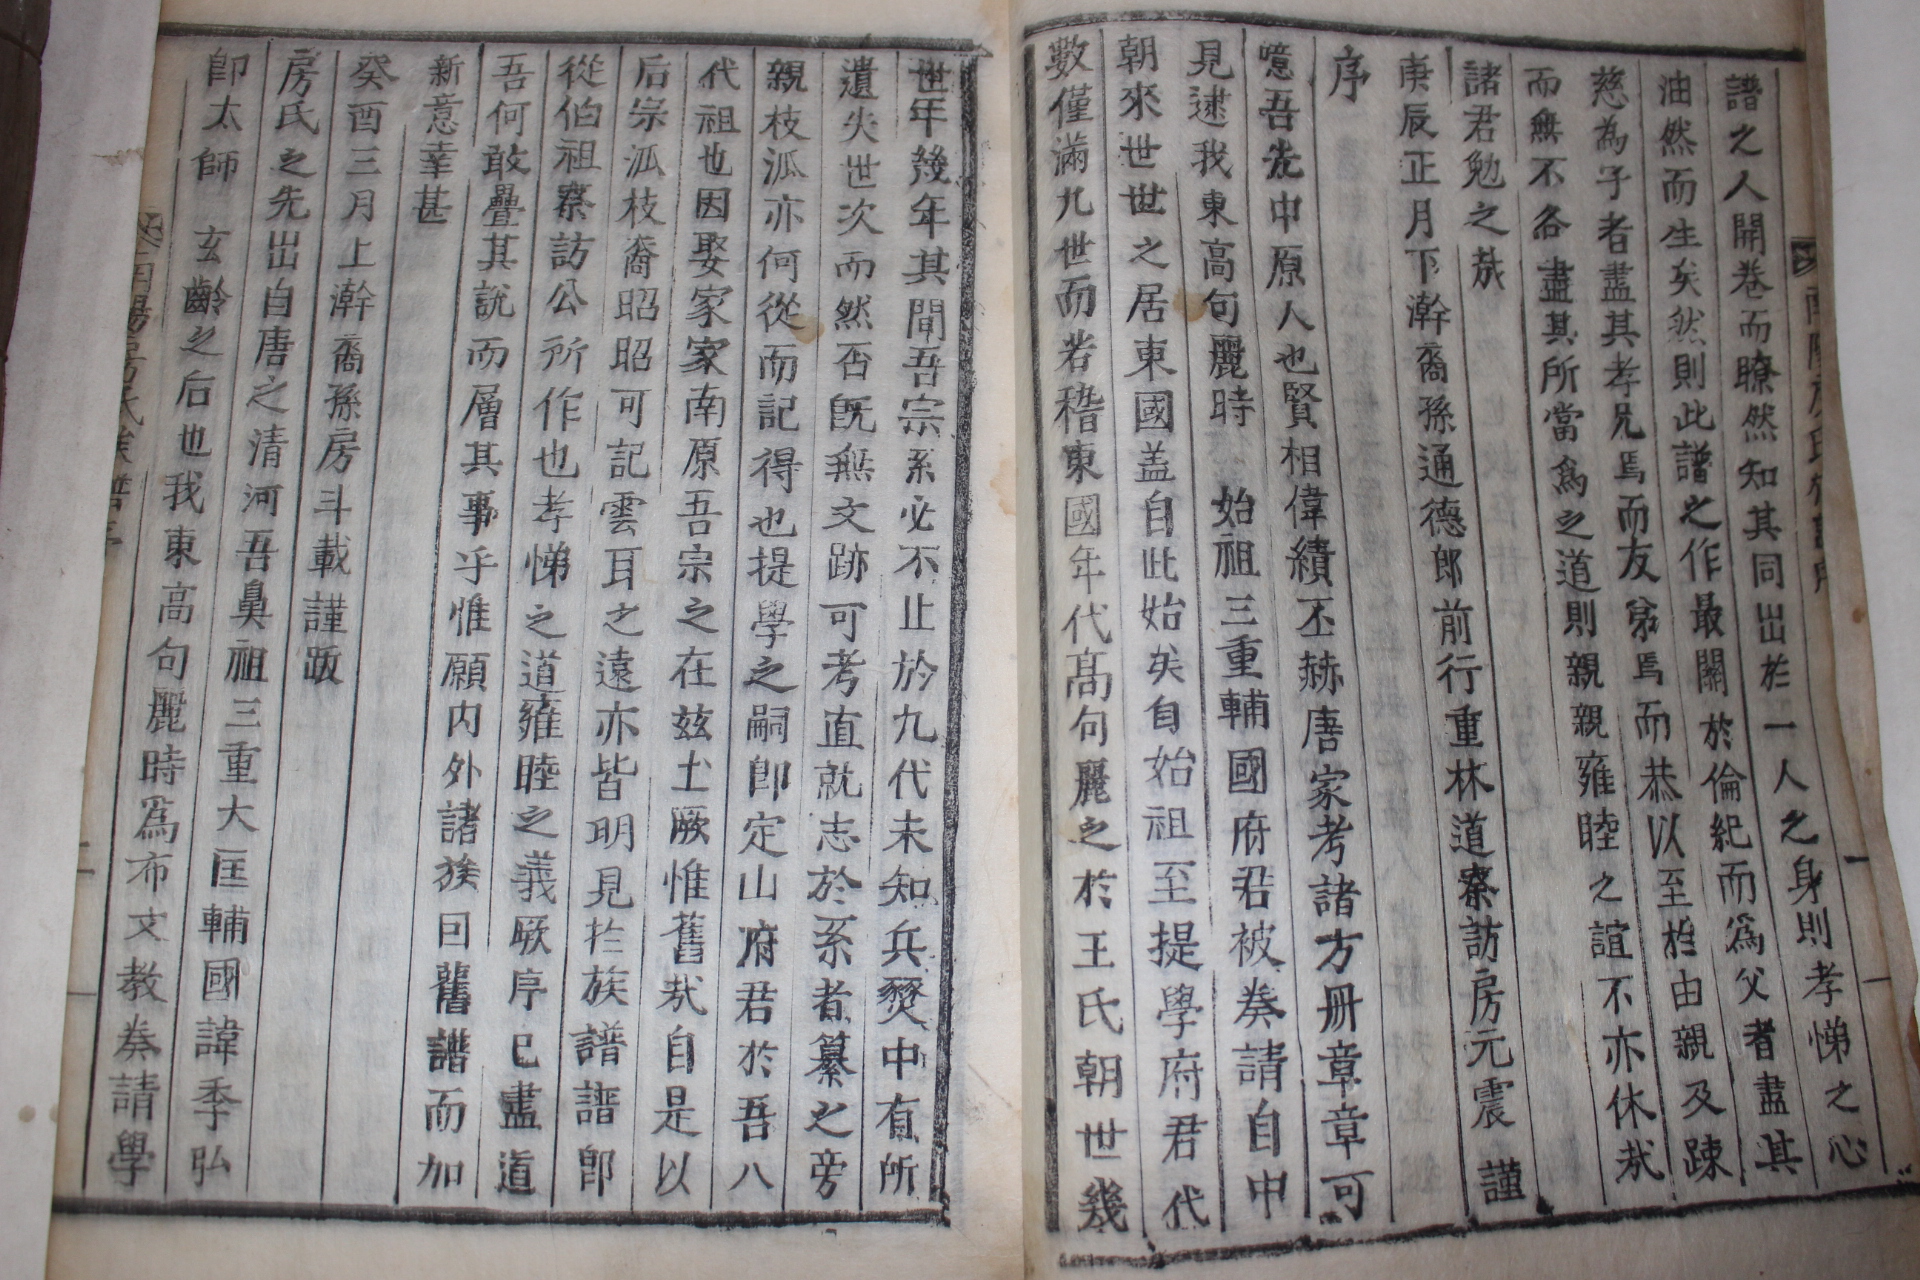 譜之人開卷而瞭然知其同出於一人之身則孝悌之心
油然而生矣然則此譜之作最關於倫紀而爲父者盡其
慈為子者盡其孝兄焉而友弟焉而恭以至於由親及踈
而無不各盡其所當爲之道則親親雍睦之誼不亦休哉
諸君勉之哉
庚辰正月下澣裔孫通德郎前行重林道察訪房元震謹
序
噫吾先中原人也賢相偉績丕赫唐家考諸方冊章章可
見逮我東高句麗時 始祖三重輔國府君被奏請自中
朝來世世之居東國盖自此始矣自始祖至提學府君代
數僅滿九世而若稽東國年代高句麗之於王氏朝世幾
世年幾年其間吾宗系必不止於九代未知兵燹中有所
遺失世次而然否旣無文跡可考直就志於系者纂之旁
親枝泒亦何從而記得也提學之嗣卽定山府君於吾八
代祖也因娶家家南原吾宗之在玆土厥惟舊哉自是以
后宗泒枝裔昭昭可記雲耳之遠亦皆明見於族譜譜卽
從伯祖察訪公所作也孝悌之道雍睦之義厥序已盡道
吾何敢疊其說而層其事乎惟願內外諸族因舊譜而加
新意幸甚
癸酉三月上澣裔孫房斗載謹跋
房氏之先出自唐之清河吾鼻祖三重大匡輔國諱季弘
卽太師 玄齡之后也我東高句麗時爲布文教奏請學